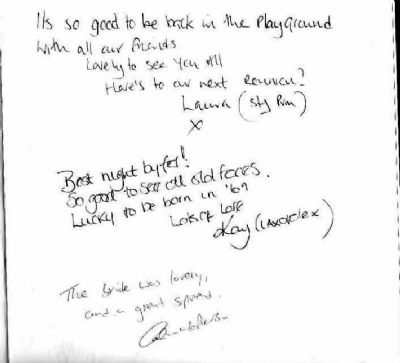 Its so good to be back in the Playground
with all our friends
Lovely to see you all
Here's to our next Reunion?
Laura (
x
Best night by far!
So good to see all old faces.
Lucky to be born in '69
Lots of Love
Kay (
The bride was lovely,
and a great spread.